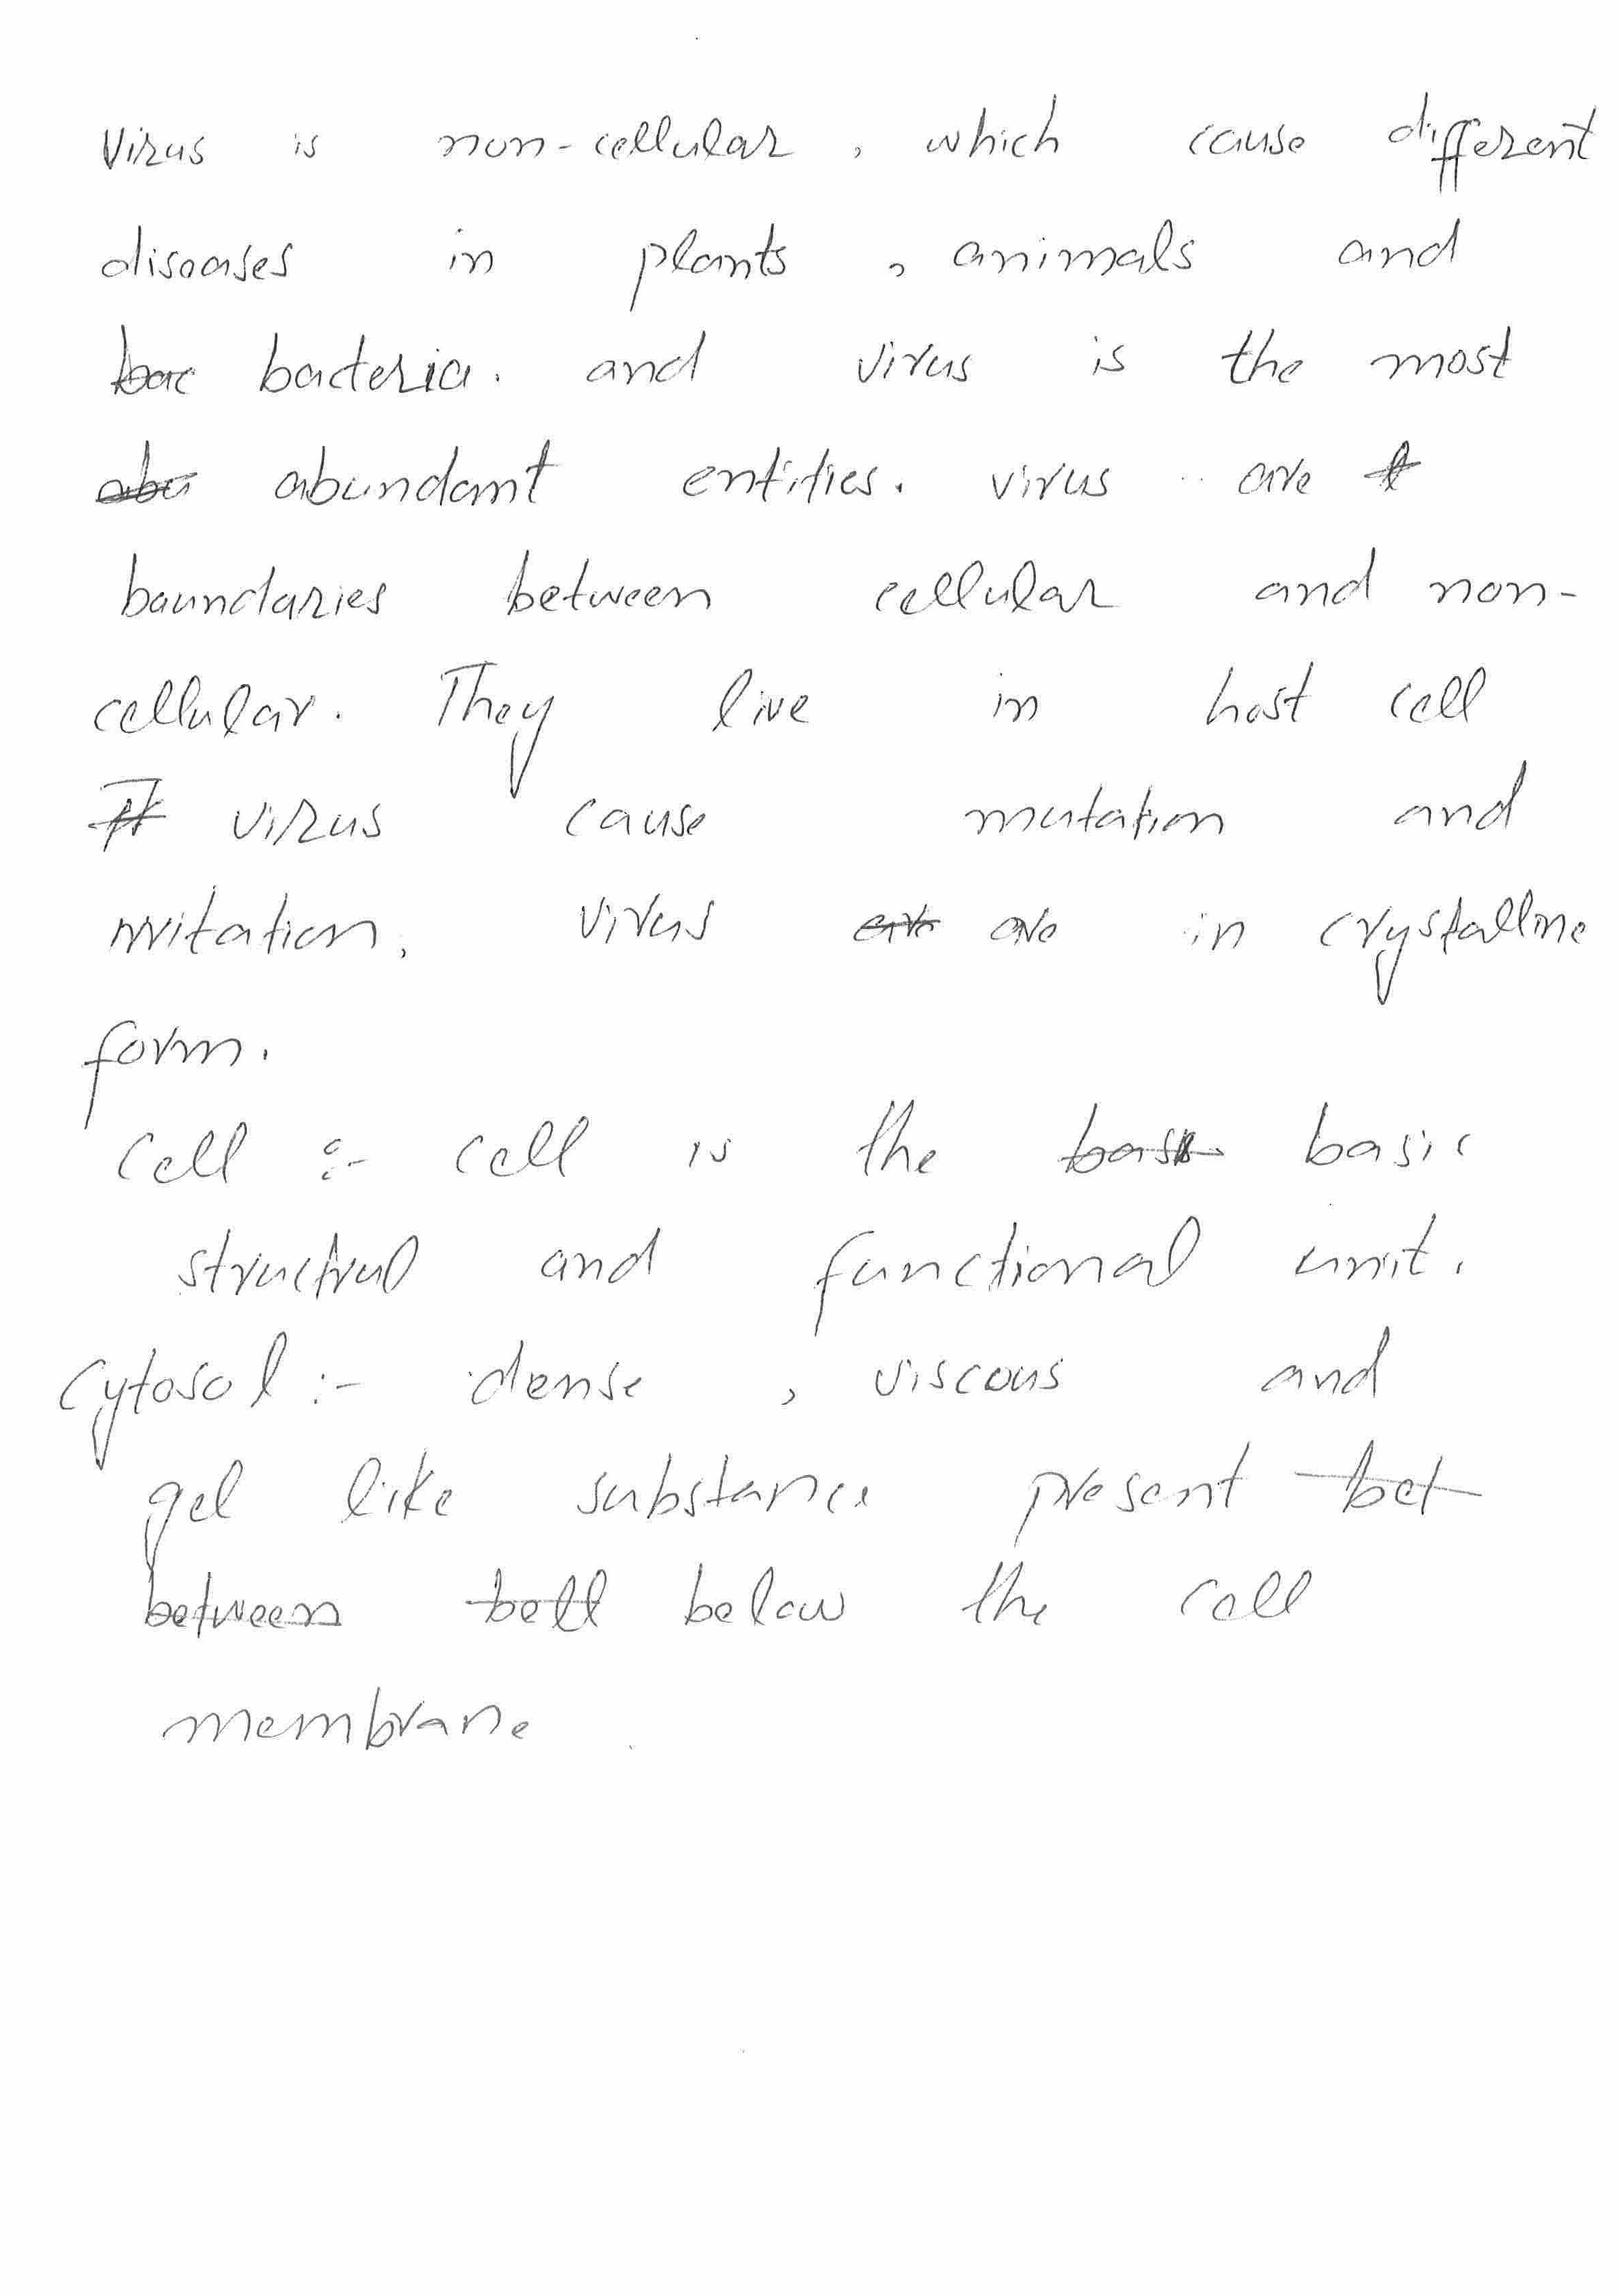 Virus is non-cellular , which cause different
diseases in plants , animals and
bac bacteria. and virus is the most
abu abundant entities. virus are
boundaries between cellular and non-
cellular. They live in host cell
virus cause mutation and
virus are in crystalline
form.
Cell :- cell is the basic
structrul and functional unit.
Cytosol :- dense , viscous and
gel like substance present bet
between bell below the cell
membrane .